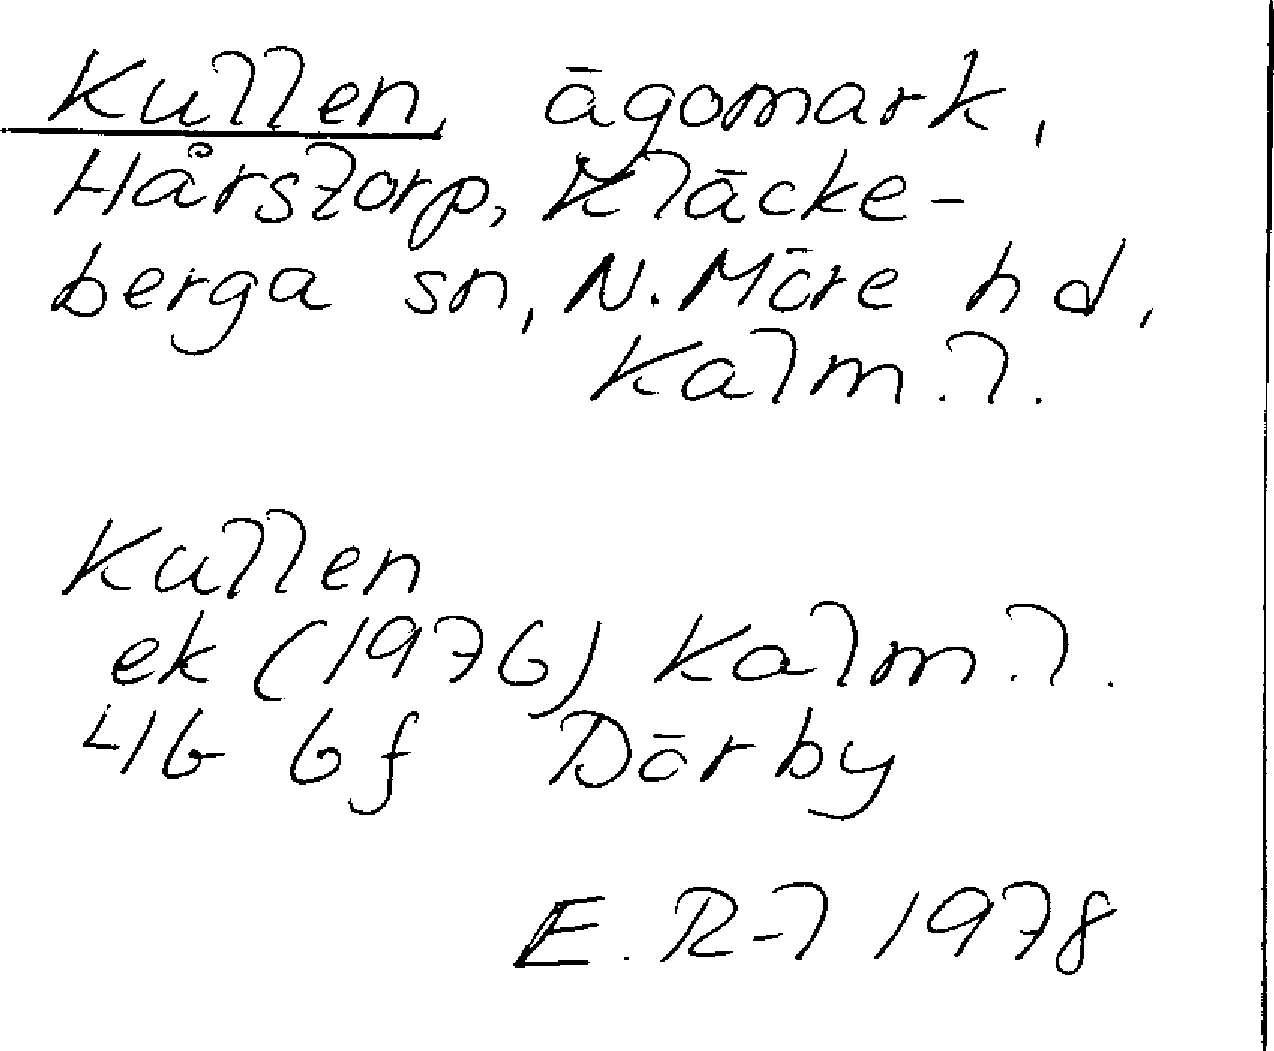 Kullen, ägomark,
Hårstorp, Kläcke-
berga sn, N. Möre hd,
Kalm. l.
Kullen
ek (1976) Kalm. l.
4G 6f Dörby
E. R-l 1978